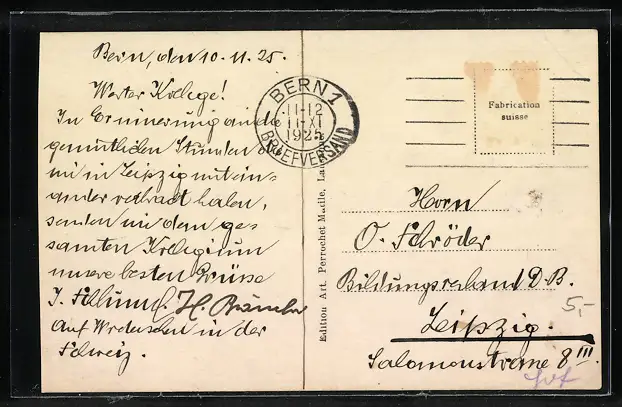 Bern, den 10.11.25.
Werter Kollege!
In Erinnerung an die
gemütlichen Stunden
wir in Leipzig mitein=
ander verbracht haben,
senden wir dem ge=
samten Kollegium
unsere besten Grüsse
J. H.
Auf Wiedersehen in der
Schweiz.
BERN 1
11-12
11.XI
1925
BRIEFVERSAND
Edition Art. Perrochet
Fabrication
suisse
Herrn
O. Schröder
Bildungsverband D.B.
Leipzig.
Salomonstrasse 8 III.
5,-